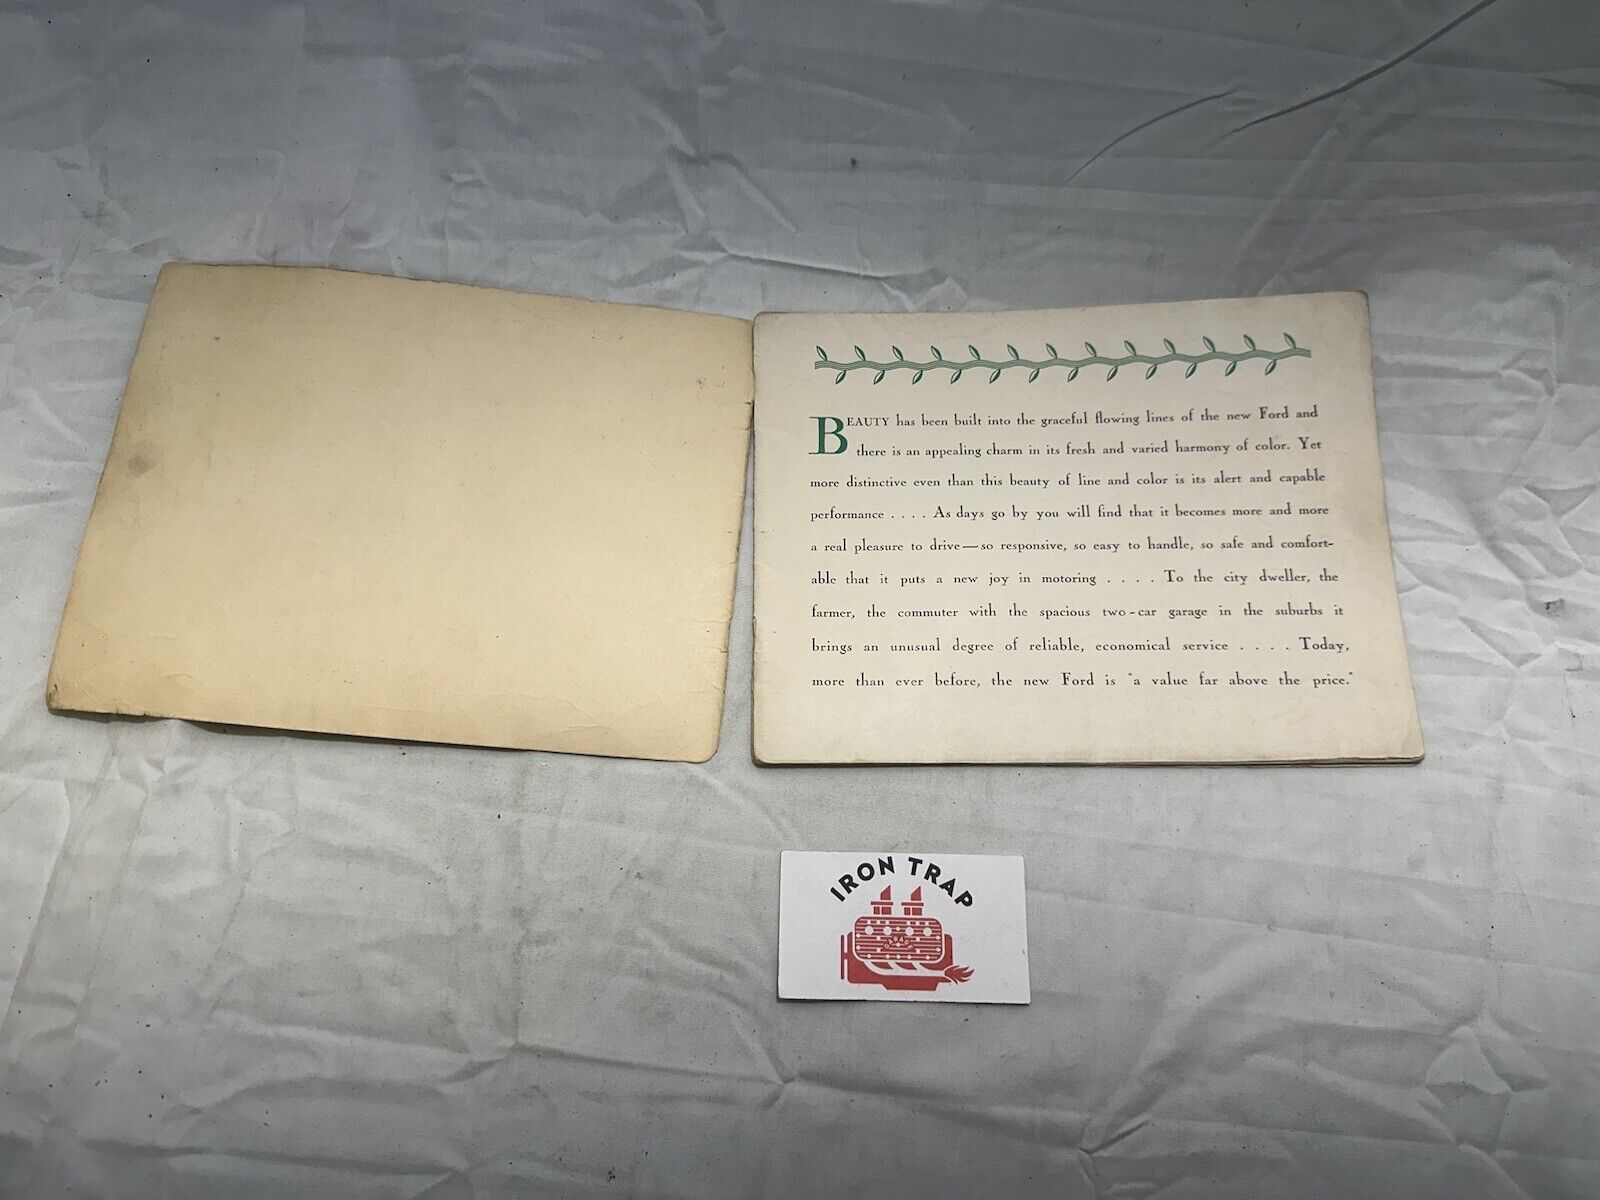 BEAUTY has been built into the graceful flowing lines of the new Ford and
there is an appealing charm in its fresh and varied harmony of color. Yet
more distinctive even than this beauty of line and color is its alert and capable
performance . . . . As days go by you will find that it becomes more and more
a real pleasure to drive—so responsive, so easy to handle, so safe and comfort-
able that it puts a new joy in motoring . . . . To the city dweller, the
farmer, the commuter with the spacious two-car garage in the suburbs it
brings an unusual degree of reliable, economical service . . . . Today,
more than ever before, the new Ford is "a value far above the price."
IRON TRAP